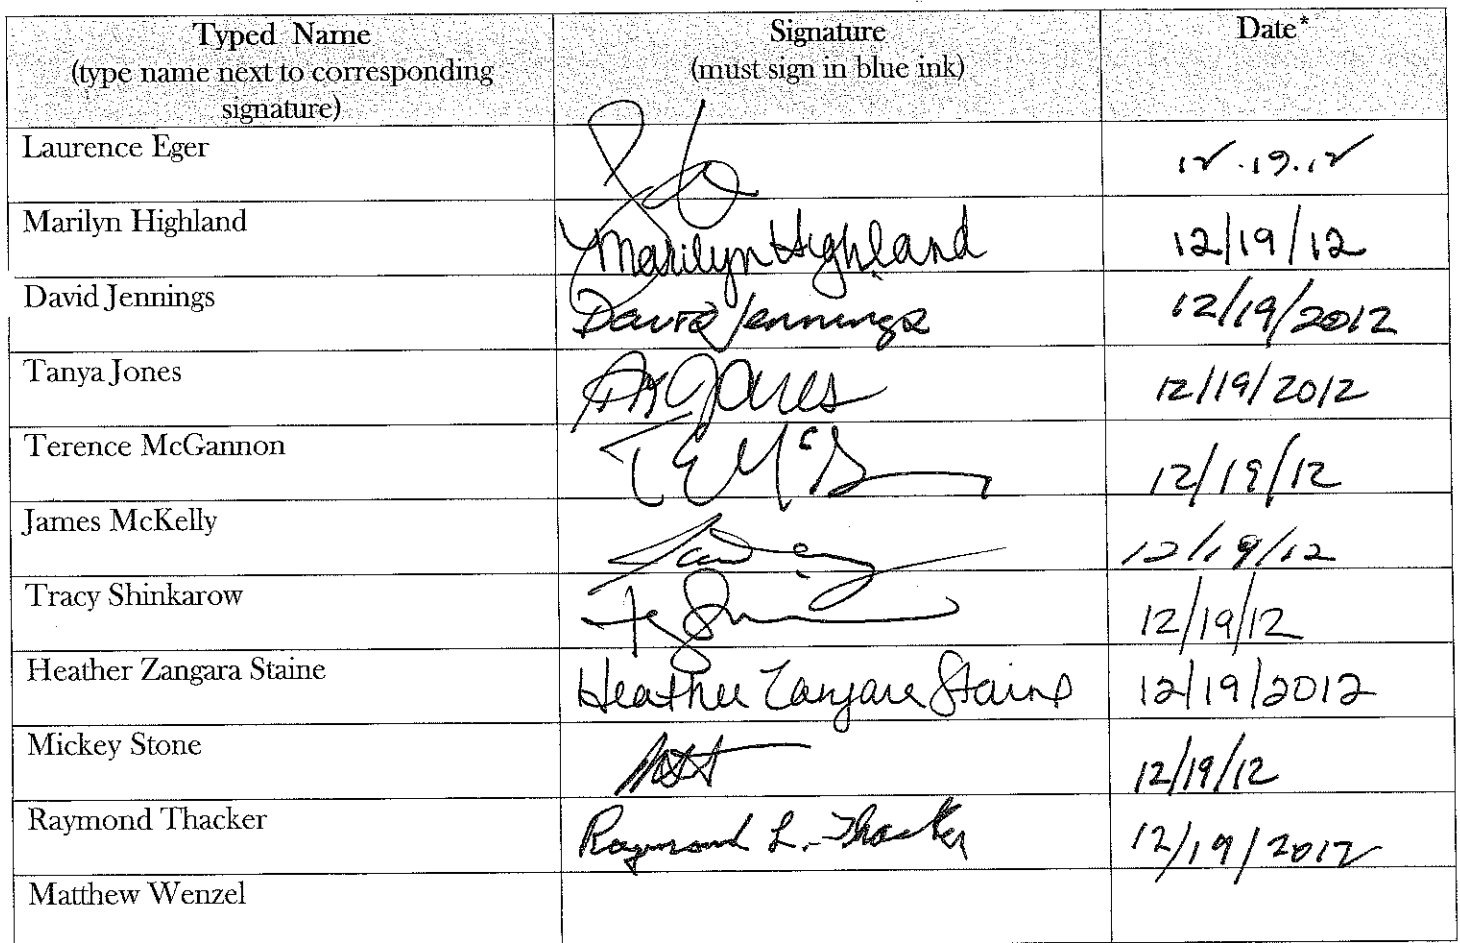 Typed Name
(type name next to corresponding
signature)
Signature
(must sign in blue ink)
Date*
Laurence Eger
12.19.12
Marilyn Highland
Marilyn Highland
12/19/12
David Jennings
David Jennings
12/19/2012
Tanya Jones
Jones
12/19/2012
Terence McGannon
12/19/12
James McKelly
12/19/12
Tracy Shinkarow
12/19/12
Heather Zangara Staine
Heather Zangara Staine
12/19/2012
Mickey Stone
12/19/12
Raymond Thacker
Raymond L. Thacker
12/19/2012
Matthew Wenzel